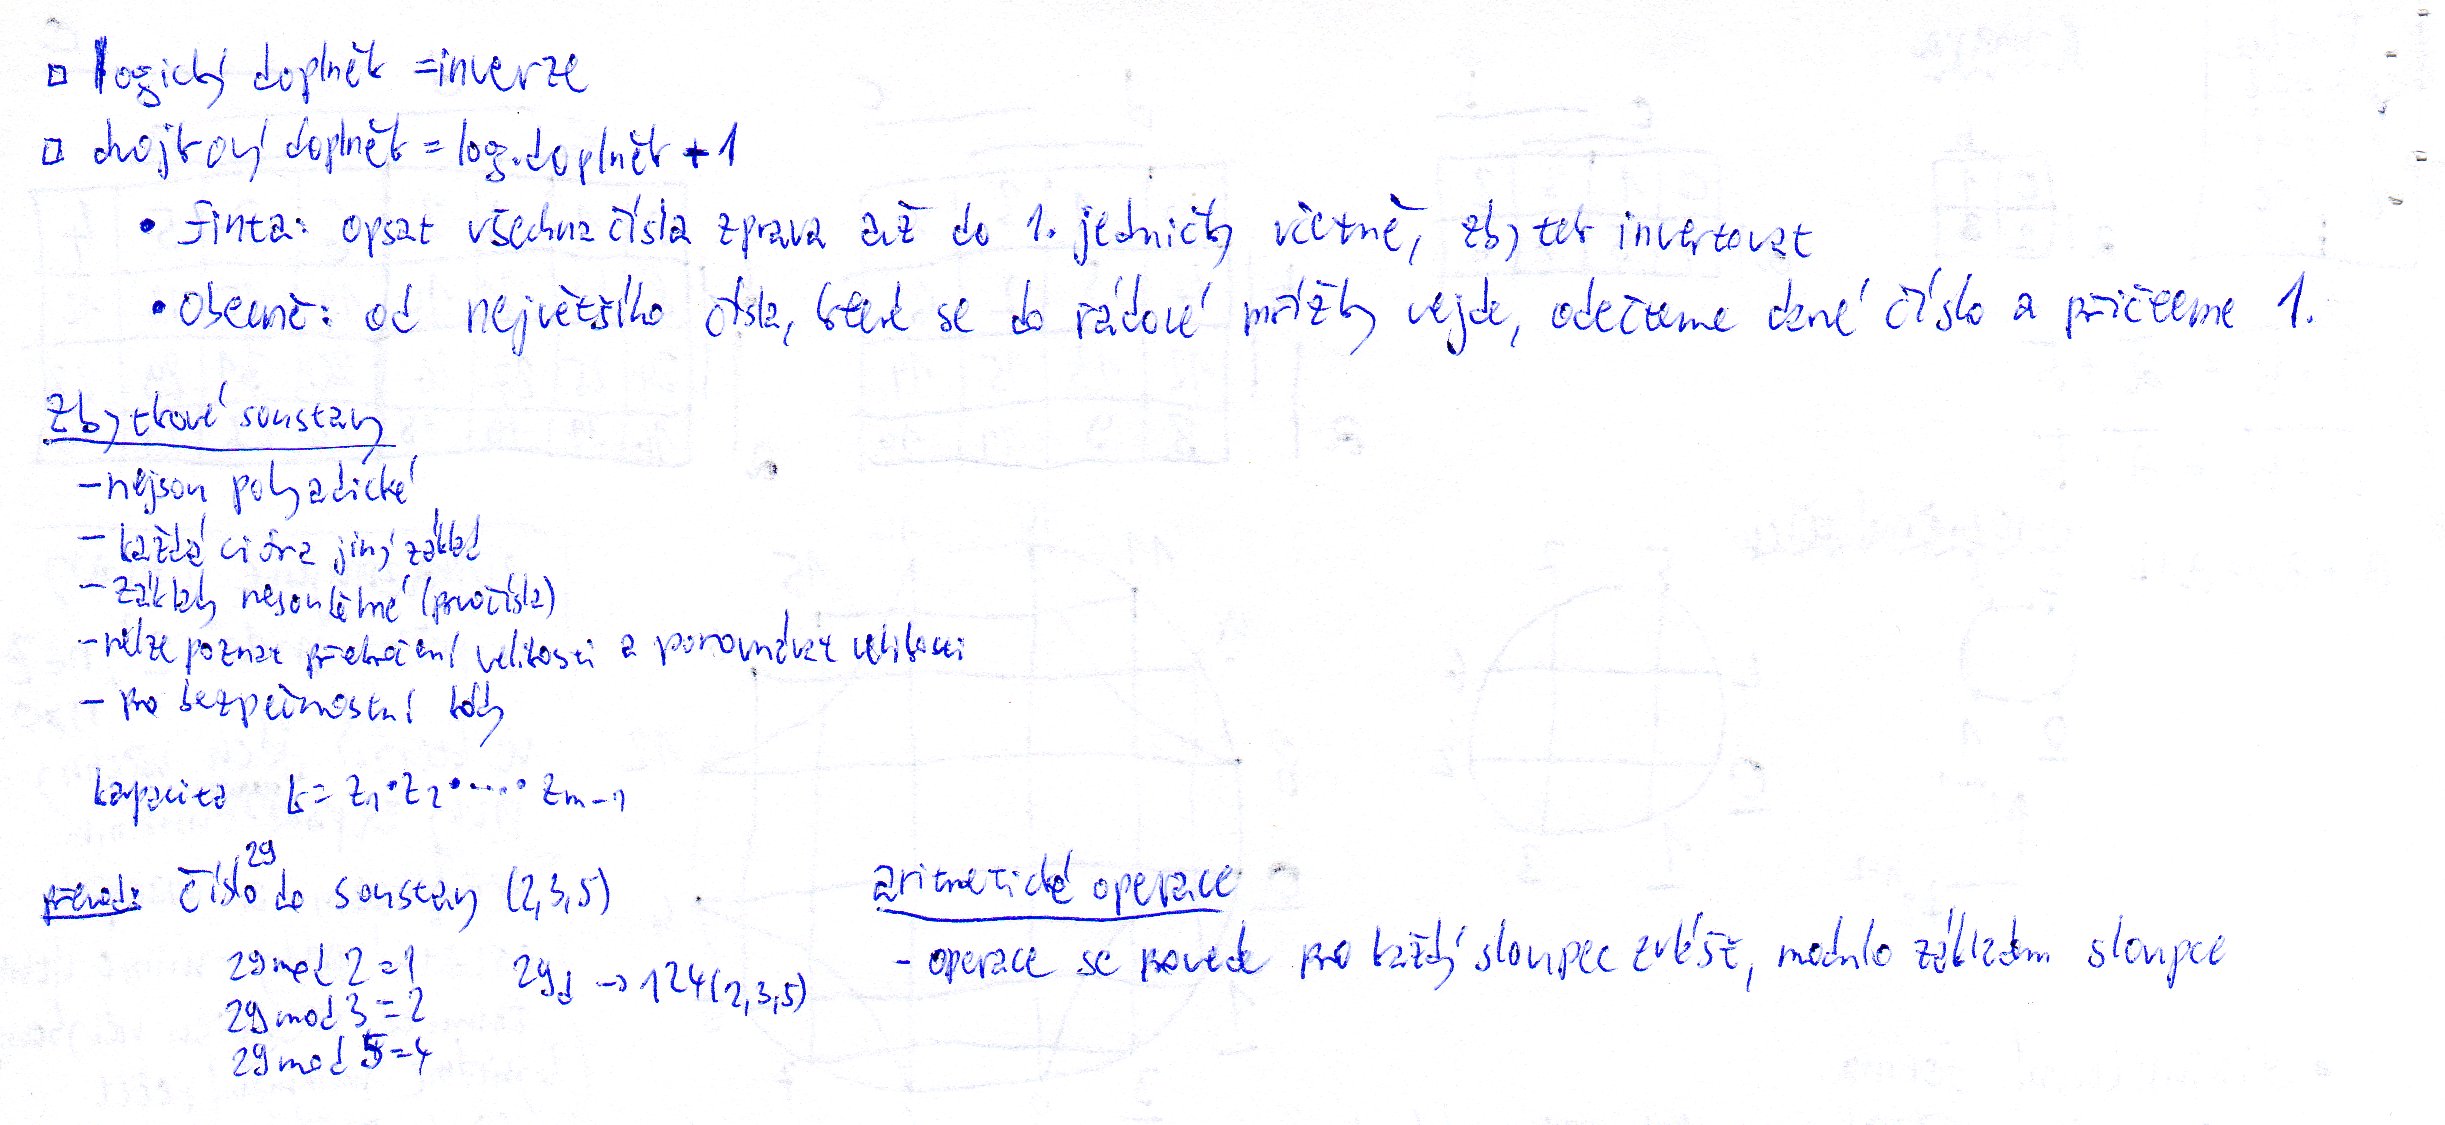 □ logický doplněk = inverze
□ dvojkový doplněk = log. doplněk + 1
• finta: opsat všechna čísla zprava až do 1. jedničky včetně, zbytek invertovat
• Obecně: od největšího čísla, které se do řádové mřížky vejde, odečteme dané číslo a přičteme 1.
Zbytkové soustavy
- nejsou polyadické
- každá cifra jiný základ
- základy nesoudělné (prvočísla)
- nelze poznat překročení velikosti a porovnávat velikosti
- pro bezpečnostní kódy
kapacita k = z1 · z2 · .... · zm-1
převod: číslo 29 do soustavy (2,3,5)
29 mod 2 = 1
29 mod 3 = 2
29 mod 5 = 4
29d → 124(2,3,5)
aritmetické operace
- operace se provede pro každý sloupec zvlášť, modulo základem sloupce